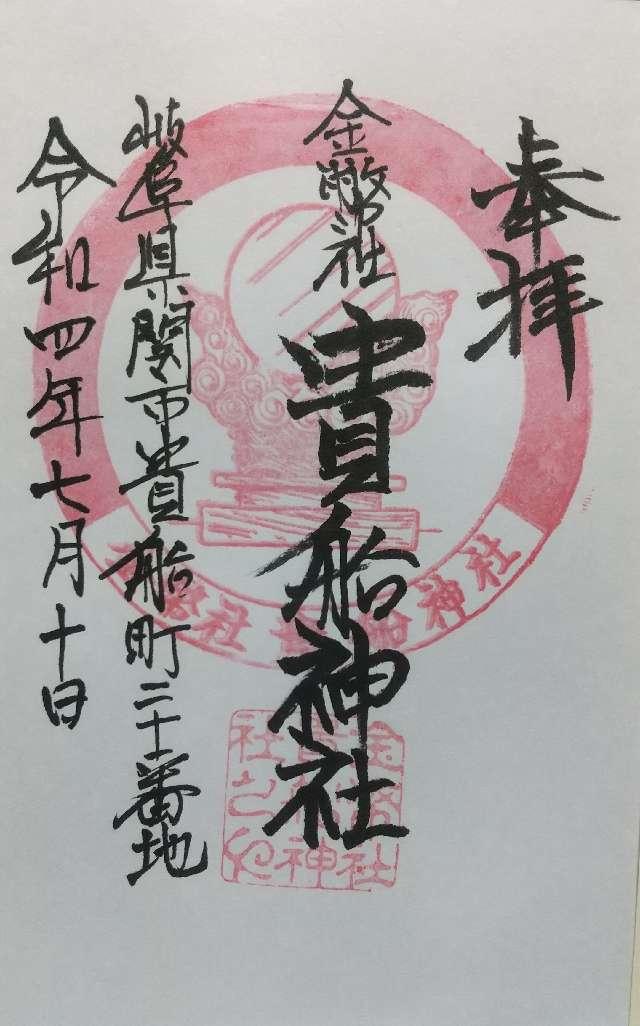 奉拝
金幣社
貴船神社
岐阜県関市貴船町二十番地
令和四年七月十日
金幣社 貴船神社
金幣社
貴船神社
之印